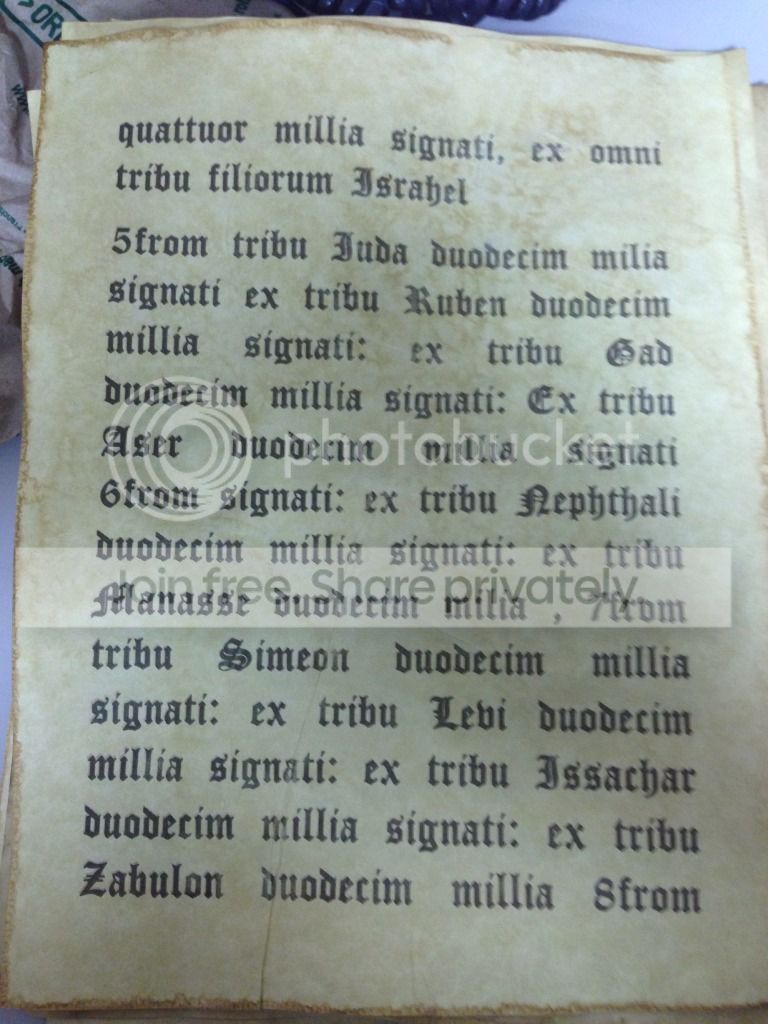 quattuor millia signati, ex omni
tribu filiorum Israhel
5from tribu Iuda duodecim milia
signati ex tribu Ruben duodecim
millia signati: ex tribu Gad
duodecim millia signati: Ex tribu
Aser duodecim millia signati
6from signati: ex tribu Nephthali
duodecim millia signati: ex tribu
Manasse duodecim milia , 7from
tribu Simeon duodecim millia
signati: ex tribu Levi duodecim
millia signati: ex tribu Issachar
duodecim millia signati: ex tribu
Zabulon duodecim millia 8from
photobucket
Join free. Share privately.